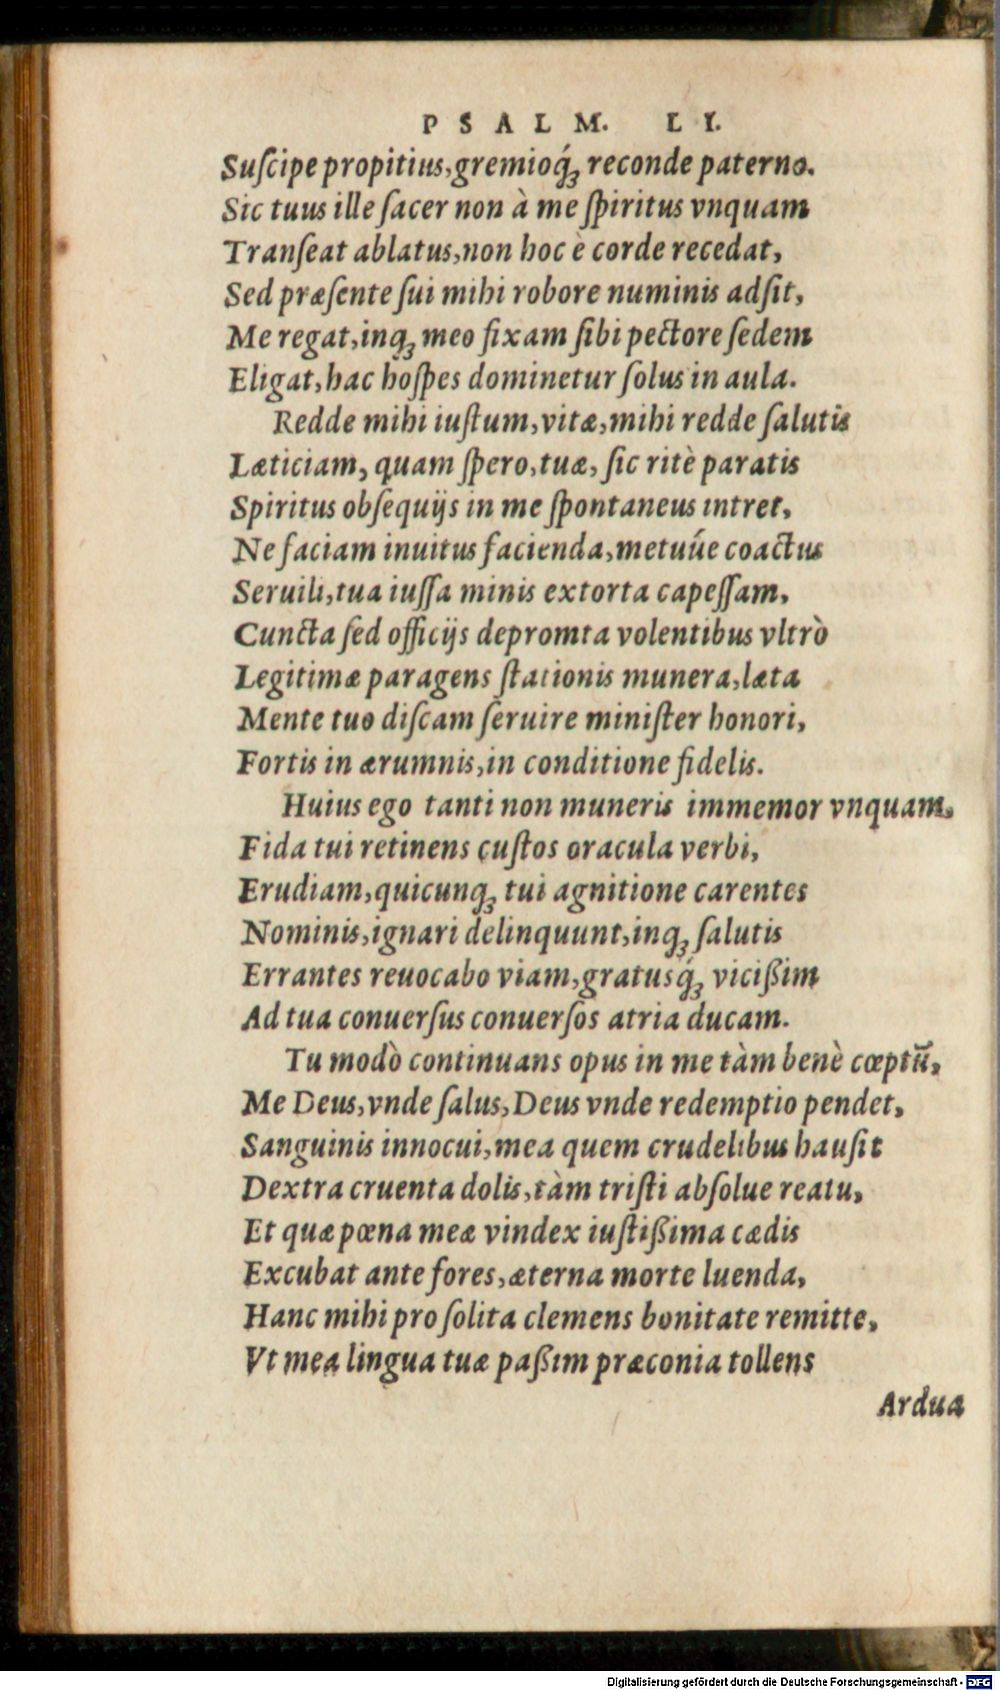 PSALM. LI.
Suſcipe propitius, gremioq́; reconde paterno.
Sic tuus ille ſacer non à me ſpiritus vnquam
Tranſeat ablatus, non hoc è corde recedat,
Sed præſente ſui mihi robore numinis adſit,
Me regat, inq; meo fixam ſibi pectore ſedem
Eligat, hac hoſpes dominetur ſolus in aula.
Redde mihi iuſtum, vitæ, mihi redde ſalutis
Læticiam, quam ſpero, tuæ, ſic ritè paratis
Spiritus obſequijs in me ſpontaneus intret,
Ne faciam inuitus facienda, metuúe coactus
Seruili, tua iuſſa minis extorta capeſſam,
Cuncta ſed officijs depromta volentibus vltrò
Legitimæ paragens ſtationis munera, læta
Mente tuo diſcam ſeruire miniſter honori,
Fortis in ærumnis, in conditione fidelis.
Huius ego tanti non muneris immemor vnquam,
Fida tui retinens cuſtos oracula verbi,
Erudiam, quicunq; tui agnitione carentes
Nominis, ignari delinquunt, inq; ſalutis
Errantes reuocabo viam, gratusq́; vicißim
Ad tua conuerſus conuerſos atria ducam.
Tu modò continuans opus in me tàm benè cœptũ,
Me Deus, vnde ſalus, Deus vnde redemptio pendet,
Sanguinis innocui, mea quem crudelibus hauſit
Dextra cruenta dolis, tàm triſti abſolue reatu,
Et quæ pœna meæ vindex iuſtißima cædis
Excubat ante fores, æterna morte luenda,
Hanc mihi pro ſolita clemens bonitate remitte,
Vt mea lingua tuæ paßim præconia tollens
Ardua
Digitalisierung gefördert durch die Deutsche Forschungsgemeinschaft - DFG